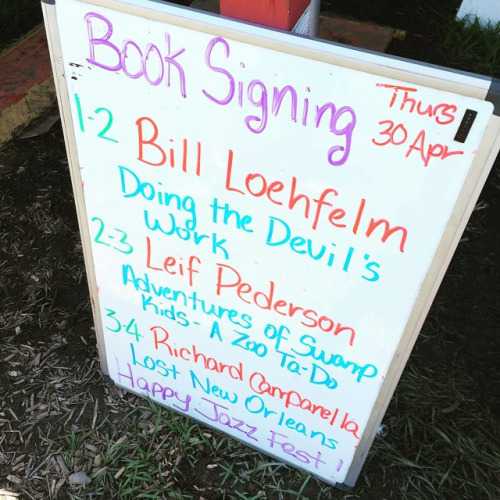 Book Signing
Thurs
30 Apr
1-2 Bill Loehfelm
Doing the Devil's
Work
2-3 Leif Pederson
Adventures of Swamp
Kids - A Zoo Ta-Do
3-4 Richard Campanella
Lost New Orleans
Happy Jazz Fest!